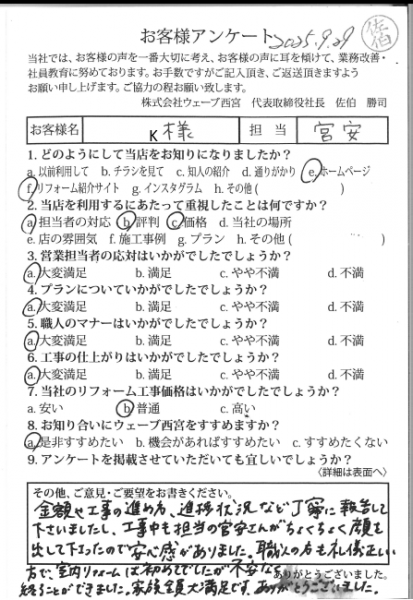 お客様アンケート 2025.9.29 佐伯
当社では、お客様の声を一番大切に考え、お客様の声に耳を傾けて、業務改善・
社員教育に努めております。お手数ですがご記入頂き、ご返送頂きますよう
お願い申し上げます。ご協力の程お願い致します。
株式会社ウェーブ西宮 代表取締役社長 佐伯 勝司
お客様名 K様 担当 宮安
1. どのようにして当店をお知りになりましたか？
a. 以前利用して b. チラシを見て c. 知人の紹介 d. 通りがかり e. ホームページ
f. リフォーム紹介サイト g. インスタグラム h. その他 ( )
2. 当店を利用するにあたって重視したことは何ですか？
a. 担当者の対応 b. 評判 c. 価格 d. 当社の場所
e. 店の雰囲気 f. 施工事例 g. プラン h. その他 (
3. 営業担当者の応対はいかがでしたでしょうか？
a. 大変満足 b. 満足 c. やや不満 d. 不満
4. プランについていかがでしたでしょうか？
a. 大変満足 b. 満足 c. やや不満 d. 不満
5. 職人のマナーはいかがでしたでしょうか？
a. 大変満足 b. 満足 c. やや不満 d. 不満
6. 工事の仕上がりはいかがでしたでしょうか？
a. 大変満足 b. 満足 c. やや不満 d. 不満
7. 当社のリフォーム工事価格はいかがでしたでしょうか？
a. 安い b. 普通 c. 高い
8. お知り合いにウェーブ西宮をすすめますか？
a. 是非すすめたい b. 機会があればすすめたい c. すすめたくない
9. アンケートを掲載させていただいても宜しいでしょうか？
〈詳細は表面へ〉
その他、ご意見・ご要望をお書きください。
金額や工事の進め方、進捗状況など丁寧に報告して
下さいましたし、工事中も担当の宮安さんがちょくちょく顔を
出して下さったので安心感がありました。職人の方も礼儀正しい
方で、室内リフォームは初めてでしたが不安なく
ありがとうございました。
終えることができました。家族全員大満足です。ありがとうございました。